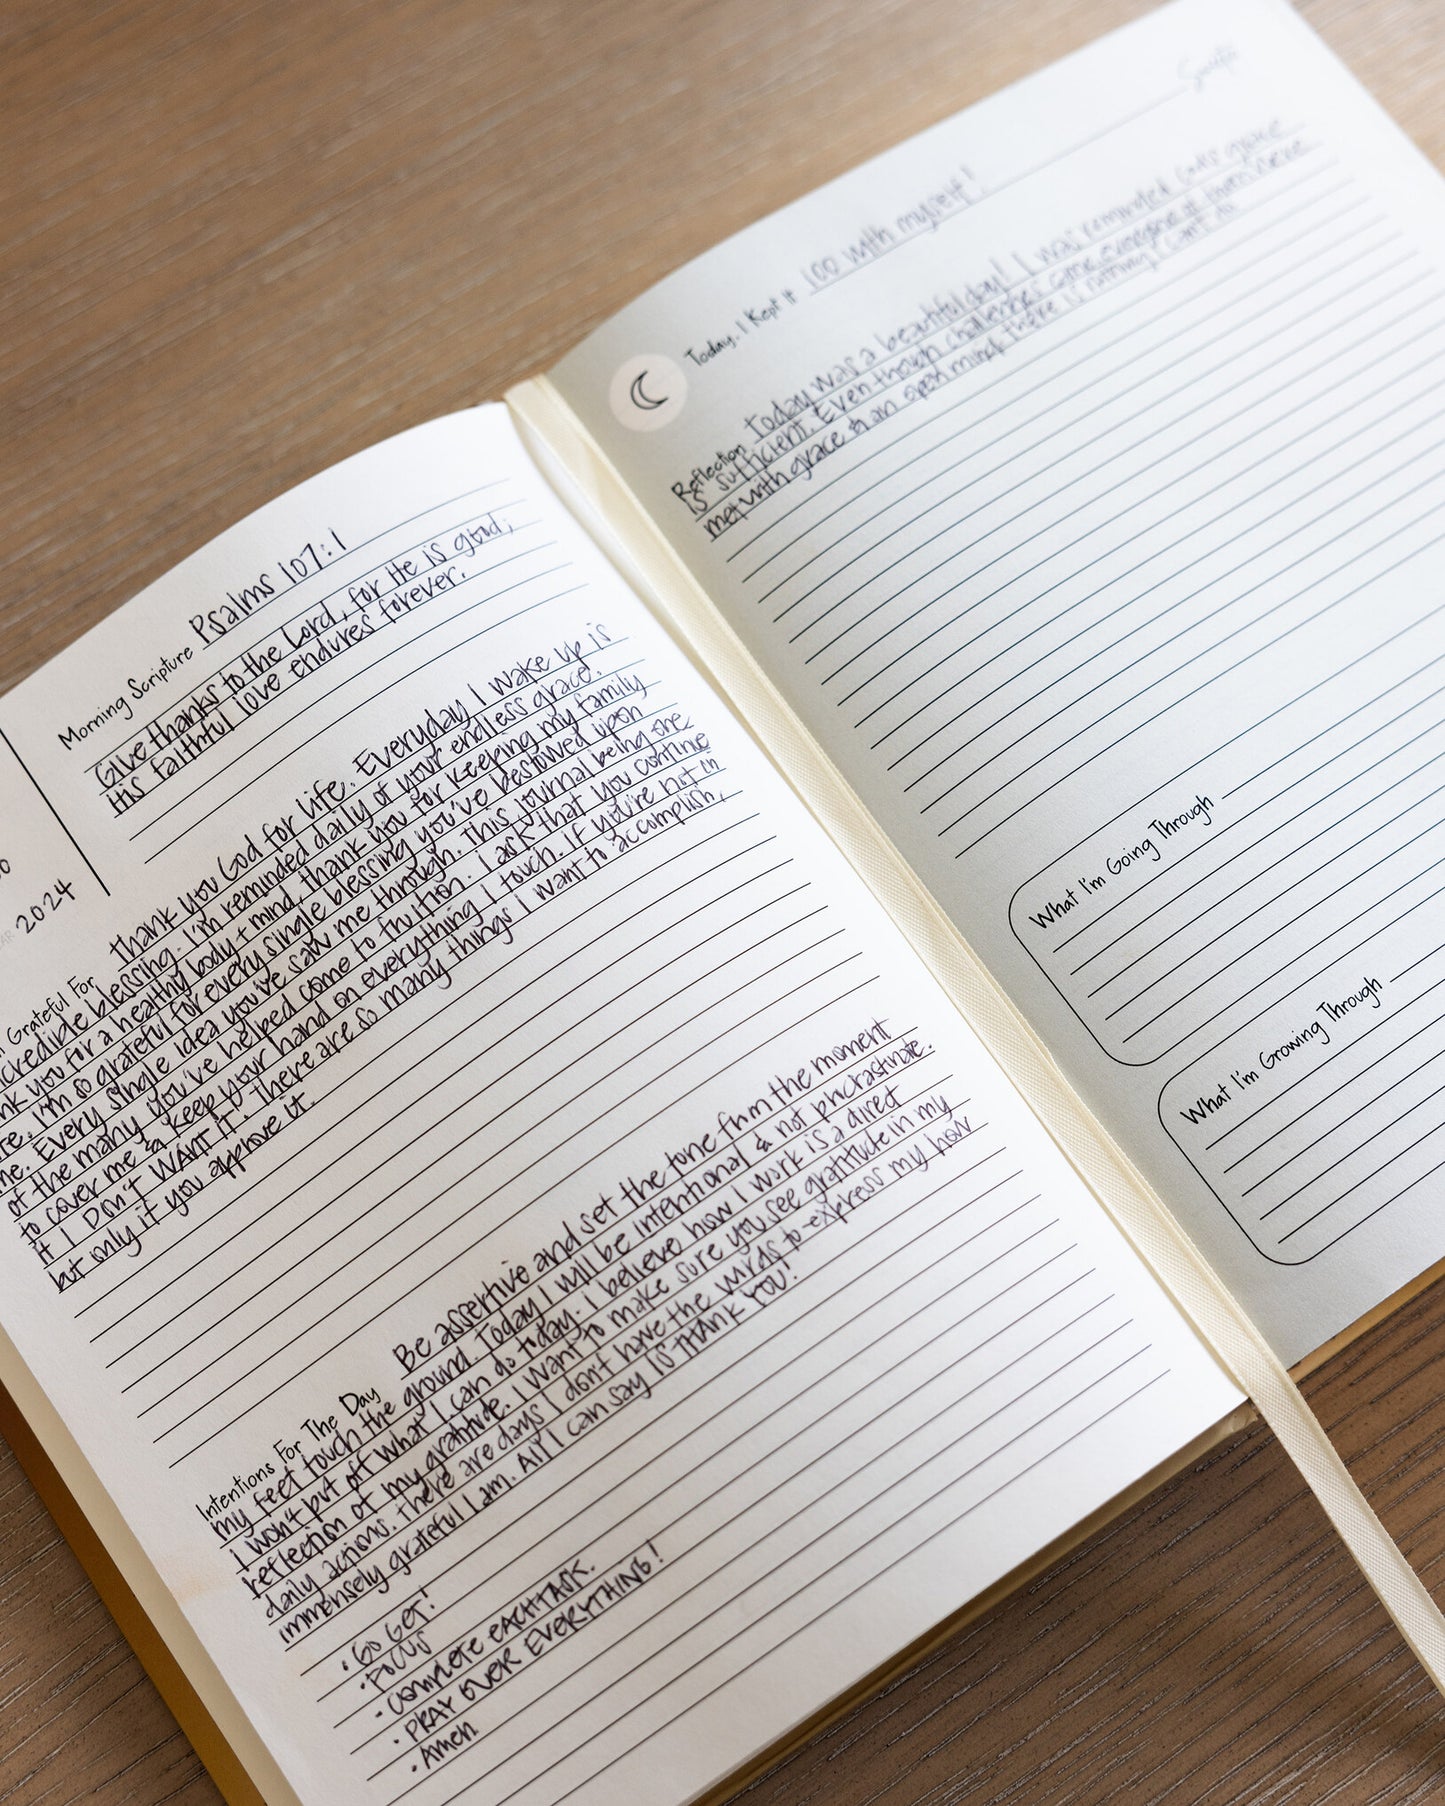 2024
Morning Scripture Psalms 107:1
Give thanks to the Lord, for He is good;
His faithful love endures forever.
Grateful For Thank you God for life. Everyday I wake up is
incredible blessing. I'm reminded daily of your endless grace.
you for a healthy body + mind, thank you for keeping my family
I'm so grateful for every single blessing you've bestowed upon
me. Every single idea you've saw me through. This journal being one,
of the many you've helped come to fruition. I ask that you continue
to cover me & keep your hand on everything I touch. If you're not in
it I DON'T WANT IT. There are so many things I want to accomplish,
but only if you approve it.
Intentions For The Day Be assertive and set the tone from the moment
my feet touch the ground. Today I will be intentional & not procrastinate.
I won't put off what I can do today. I believe how I work is a direct
reflection of my gratitude. I want to make sure you see gratitude in my
daily actions. There are days I don't have the words to express my how
immensely grateful I am. All I can say IS THANK YOU!
• GO GET!
• FOCUS
• COMPLETE EACH TASK.
• PRAY OVER EVERYTHING!
• Amen
Today, I Kept It 100 with myself!
Reflection Today was a beautiful day! I was reminded God's grace
is sufficient. Even though challenges came, everyone of them were
met with grace & an open mind. There is nothing I can't do
What I'm Going Through
What I'm Growing Through